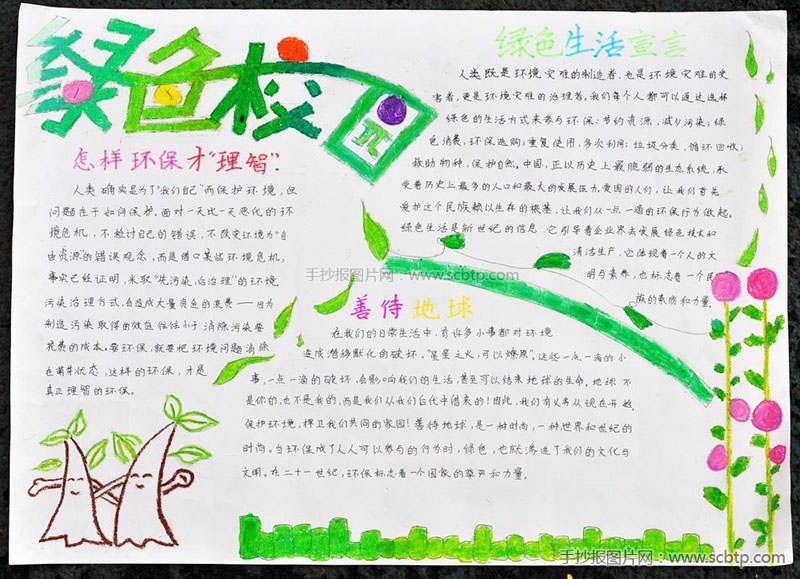 绿色校园
怎样环保才"理智"?
人类确实是为了"我们自己"而保护环境,但
问题在于如何保护。面对一天比一天恶化的环
境危机,不检讨自己的错误,不改变环境为"自
由资源"的错误观念,而是借口某些环境危机,
事实已经证明,采取"先污染,后治理"的环境
污染治理方式,会造成大量资色的浪费——因为
制造污染取得的效益往往小于清除污染要
花费的成本。要环保,就要把环境问题消除
在萌芽状态,这样的环保,才是
真正理智的环保。
绿色生活宣言
人类既是环境灾难的制造者,也是环境灾难的受
害者,更是环境灾难的治理者。我们每个人都可以通过选择
绿色的生活方式来参与环保:节约资源,减少污染;绿
色消费,环保选购;重复使用,多次利用;垃圾分类,循环回收;
救助物种,保护自然。中国,正以历史上最脆弱的生态系统,承
受着历史上最多的人口和最大的发展压力。爱国的人们,让我们首先
爱护这个民族赖以生存的根基,让我们从一点一滴的环保行为做起。
绿色生活是新世纪的信息,它引导着企业界去发展绿色技术和
清洁生产,它体现着一个人的文
明与素养,也标志着一个民
族的素质和力量。
手抄报图片网:www.scbtp.com
善待地球
在我们的日常生活中,有许多小事都对环境
造成潜移默化的破坏,"星星之火,可以燎原"。这些一点一滴的小
事,一点一滴的破坏,会影响我们的生活,甚至可以结束地球的生命。地球不
是你的,也不是我的,而是我们从我们后代中借来的!因此,我们有义务从现在开始,
保护环境,捍卫我们共同的家园!善待地球,是一种时尚,一种世界和世纪的
时尚。当环保成了人人可以参与的行为时,绿色,也就渗进了我们的文化与
文明。在二十一世纪,环保标志着一个国家的尊严和力量。
手抄报图片网:www.scbtp.com